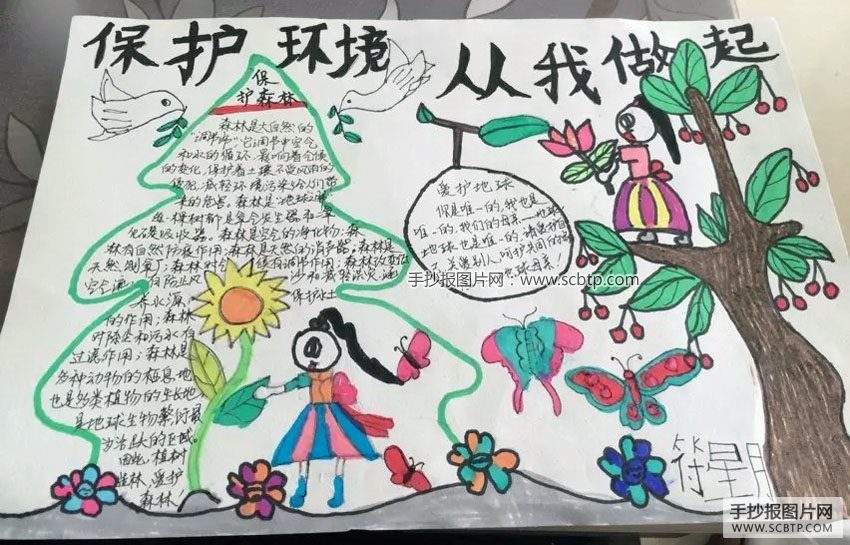 保护环境 从我做起
保
护森林
森林是大自然的
"调节师"它调节中空气
和水的循环，影响着气候
的变化，保护着土壤不受风雨的
侵犯，减轻环境污染给人们带
来的危害。森林是"地球之肺"
每一棵树都是氧气发生器和二氧
化碳吸收器。森林是空气的净化物；森
林有自然防疫作用；森林是天然的消声器；森林
天然制氧厂；森林对气候有调节作用；森林改变低
空气流，有防止风沙和减轻洪灾、涵
养水源、保护水土
的作用；森林
对除尘和污水有
过滤作用；森林是
多种动物的栖息地
也是多类植物的生长地
是地球生物繁衍最
为活跃的区域。
因此，植树
造林、爱护
森林
爱护地球
你是唯一的，我也是
唯一的，我们的母亲——地球
地球也是唯一的，请
关爱别人，呵护共同的
地球母亲！
手抄报图片网：www.scbtp.com
符星月
手抄报图片网
WWW.SCBTP.COM